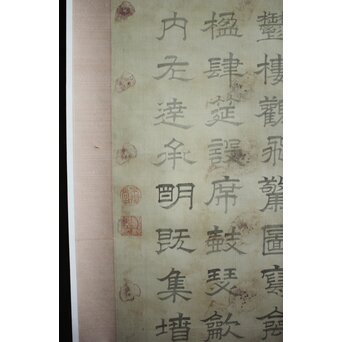 鬱樓觀飛驚圖寫禽
楹肆筵設席鼓瑟龡
内左達承明既集墳